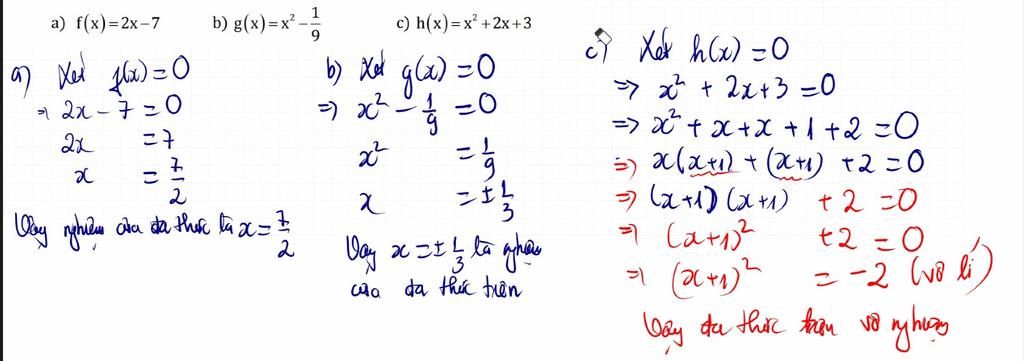 a) f(x)=2x−7 b) g(x)=x² − 1/9 c) h(x)=x²+2x+3
a) Xét f(x)=0
⇒ 2x − 7 = 0
2x = 7
x = 7/2
Vậy nghiệm của đa thức là x = 7/2
b) Xét g(x) = 0
⇒ x² − 1/9 = 0
x² = 1/9
x = ± 1/3
Vậy x = ± 1/3 là nghiệm
của đa thức trên
c) Xét h(x) = 0
⇒ x² + 2x + 3 = 0
⇒ x² + x + x + 1 + 2 = 0
⇒ x(x+1) + (x+1) + 2 = 0
⇒ (x+1)(x+1) + 2 = 0
⇒ (x+1)² + 2 = 0
⇒ (x+1)² = −2 (vô lí)
Vậy đa thức trên vô nghiệm